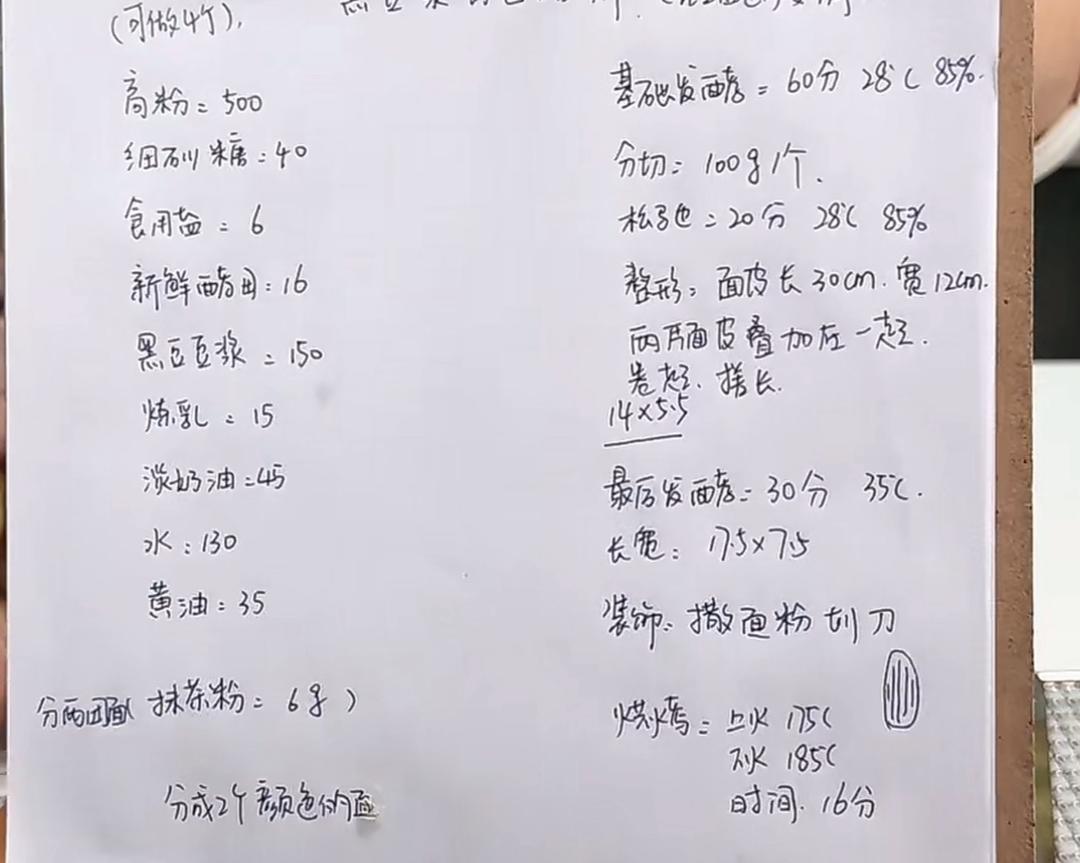 (可做4个).
高粉:500
细砂糖:40
食用盐:6
新鲜酵母:16
黑豆豆浆:150
炼乳:15
淡奶油:45
水:130
黄油:35
分两团面( 抹茶粉:6g)
分成2个颜色的面
基础发酵:60分 28℃ 85%.
分切:100g1个.
松弛:20分 28℃ 85%
整形:面皮长30cm.宽12cm.
两片面皮叠加在一起.
卷起.搓长.
14×5.5
最后发酵:30分 35℃.
长宽:17.5×7.5
装饰:撒面粉划刀
烘烤:上火 175℃
下火 185℃
时间.16分